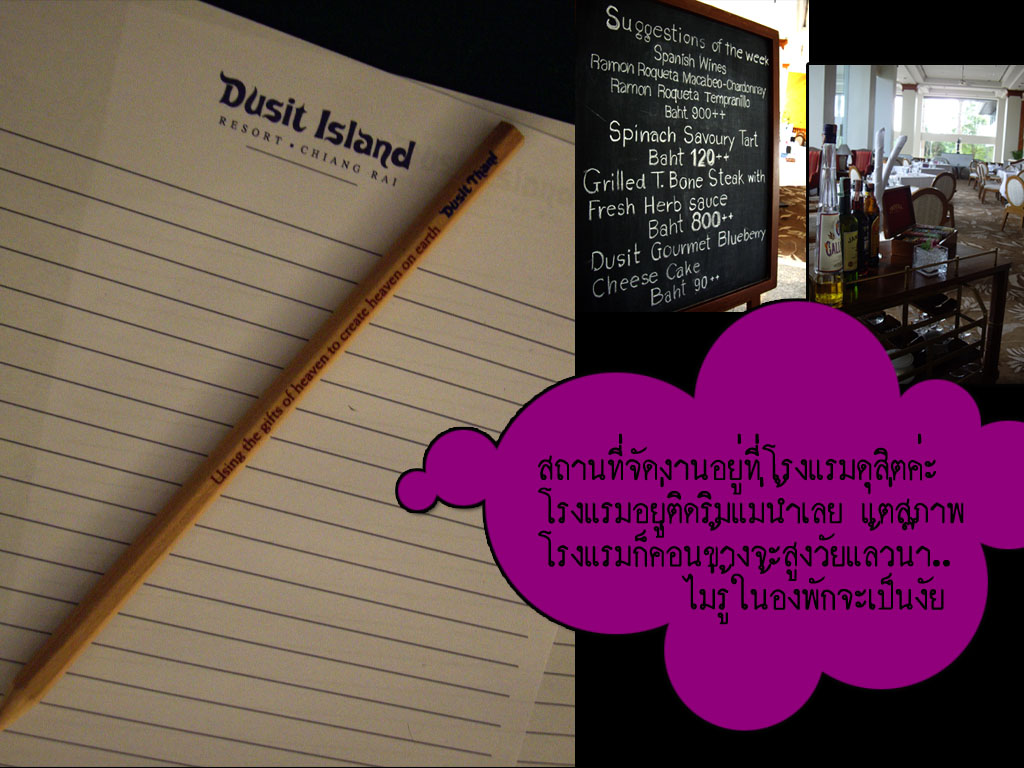 Dusit Island
RESORT • CHIANG RAI
Dusit Thani
Using the gifts of heaven to create heaven on earth
Suggestions of the week
Spanish Wines
Ramon Roqueta Macabeo-Chardonnay
Ramon Roqueta Tempranillo
Baht 900++
Spinach Savoury Tart
Baht 120++
Grilled T. Bone Steak with
Fresh Herb sauce
Baht 800++
Dusit Gourmet Blueberry
Cheese Cake
Baht 90++
สถานที่จัดงานอยู่ที่โรงแรมดุสิตค่ะ
โรงแรมอยู่ติดริมแม่น้ำเลย แต่สภาพ
โรงแรมก็ค่อนข้างจะสูงวัยแล้วน่า..
ไม่รู้ในห้องพักจะเป็นงัย